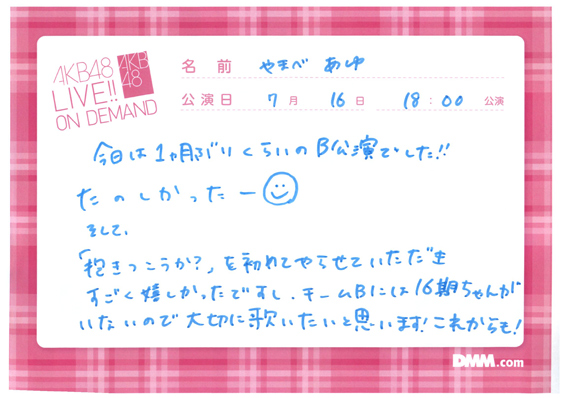 AKB48
LIVE!!
ON DEMAND
AKB
48
名前 やまべ あゆ
公演日 7月 16日 18:00 公演
今日は1ヵ月ぶりくらいのB公演でした!!
たのしかったー
そして、
「抱きつこうか?」を初めてやらせていただき
すごく嬉しかったですし、チームBには16期ちゃんが
いないので大切に歌いたいと思います!これからも!
DMM.com